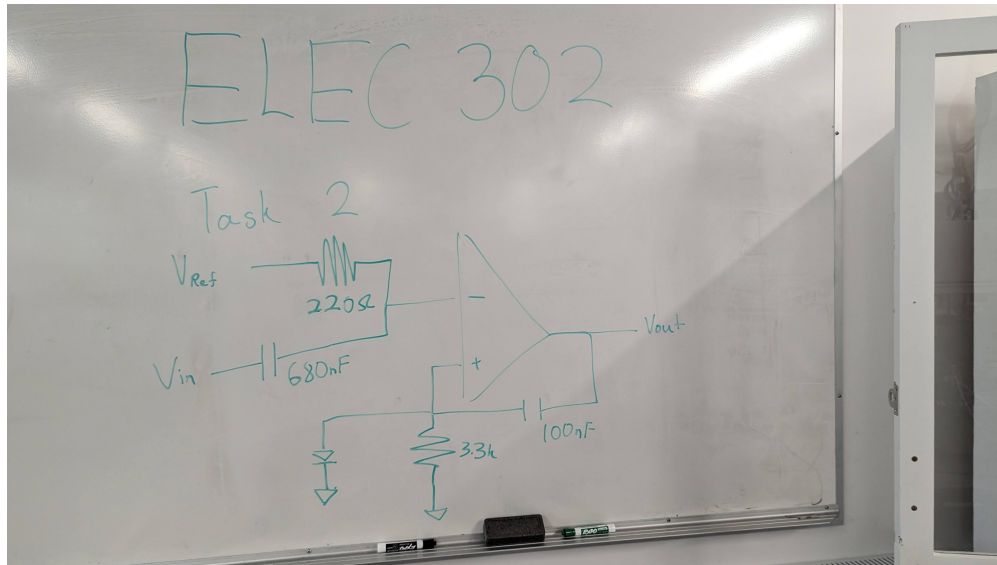 ELEC 302
Task 2
VRef
220Ω
−
Vin
680nF
+
Vout
100nF
3.3k
EXPO